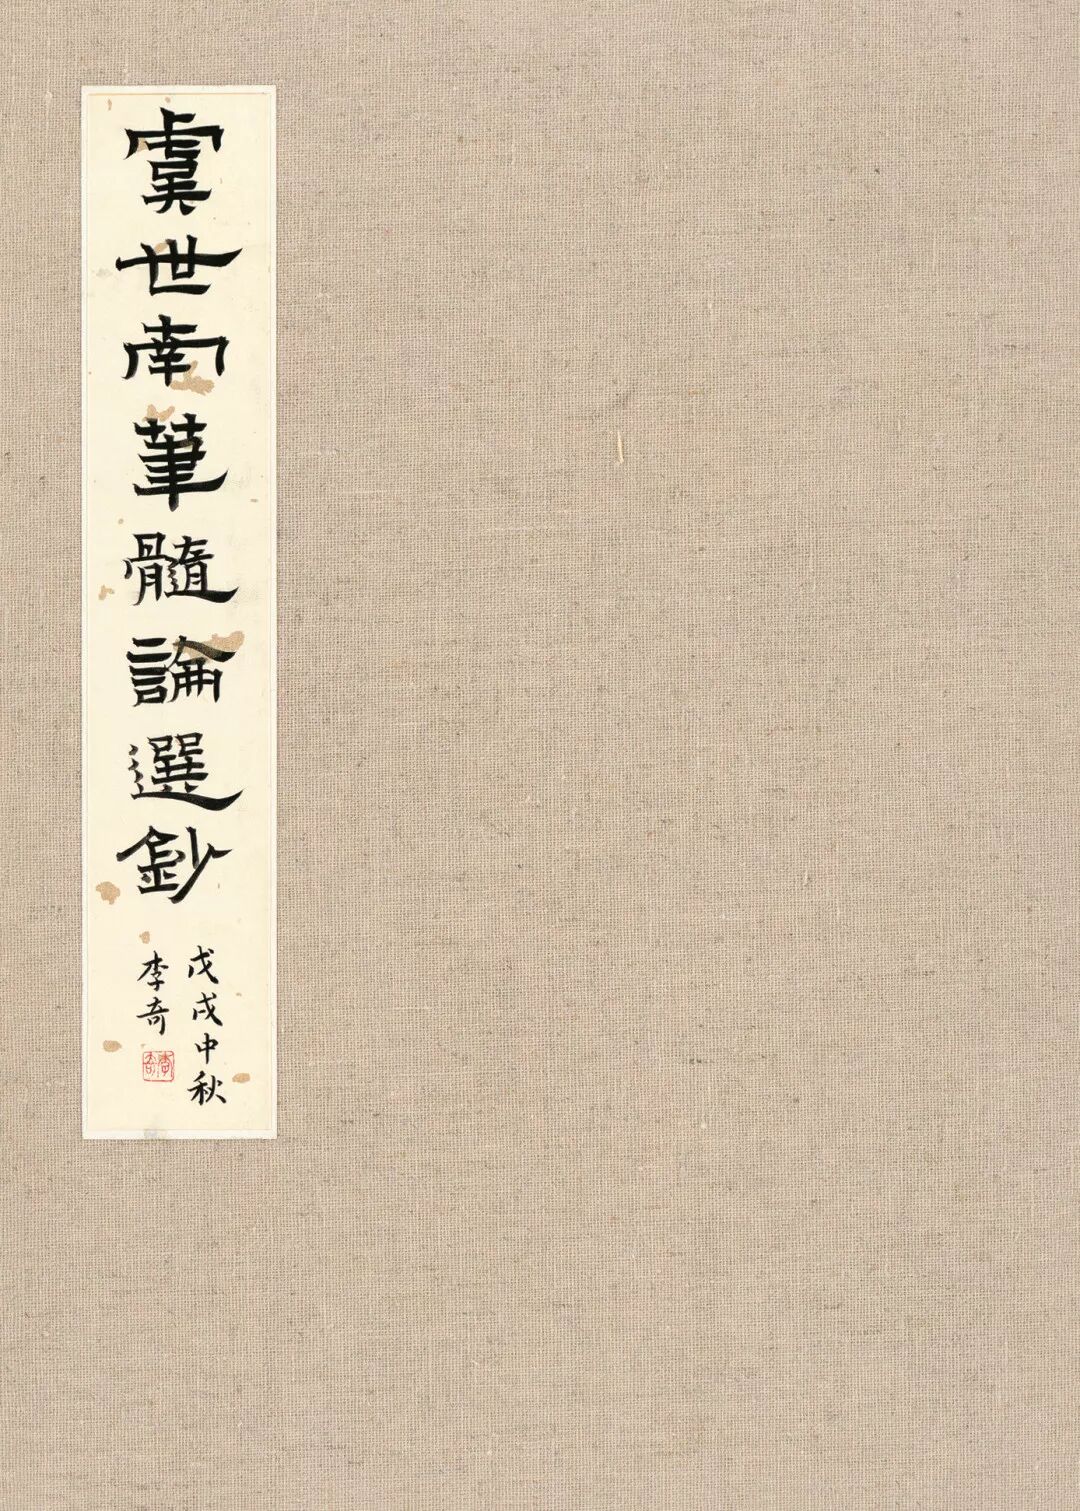 虞世南筆髓論選鈔
戊戌中秋
李奇
李奇